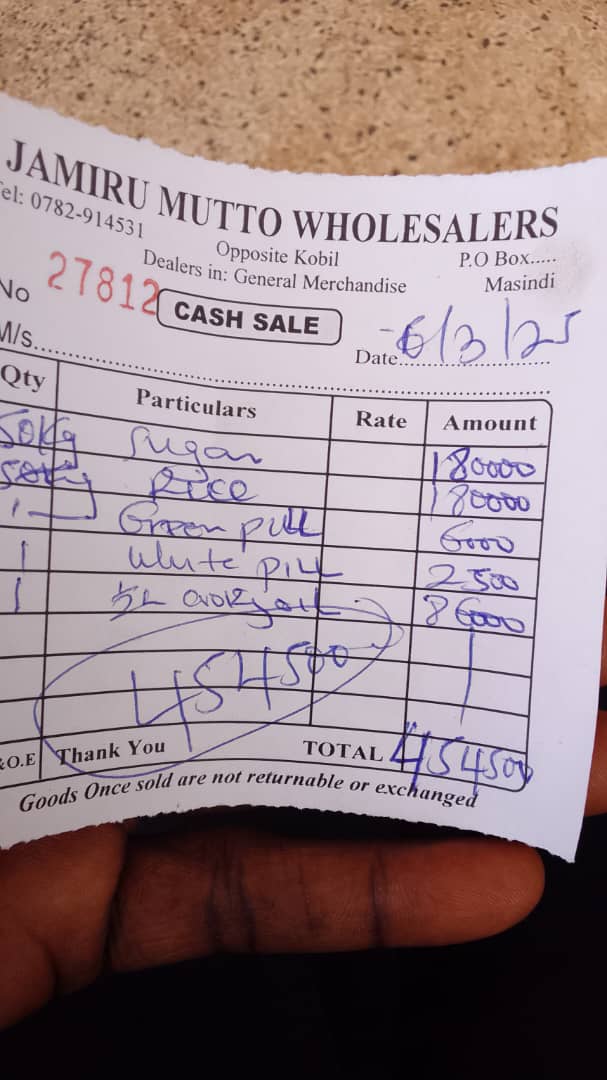 JAMIRU MUTTO WHOLESALERS
Tel: 0782-914531
Opposite Kobil P.O Box.....
Dealers in: General Merchandise Masindi
No 27812 CASH SALE Date 6/3/25
M/s
Qty Particulars Rate Amount
50Kg Sugar 180000
50Kg Rice 180000
1 Green pill 6000
1 White pill 2500
1 5L 86000
454500
&O.E Thank You TOTAL 454500
Goods Once sold are not returnable or exchanged